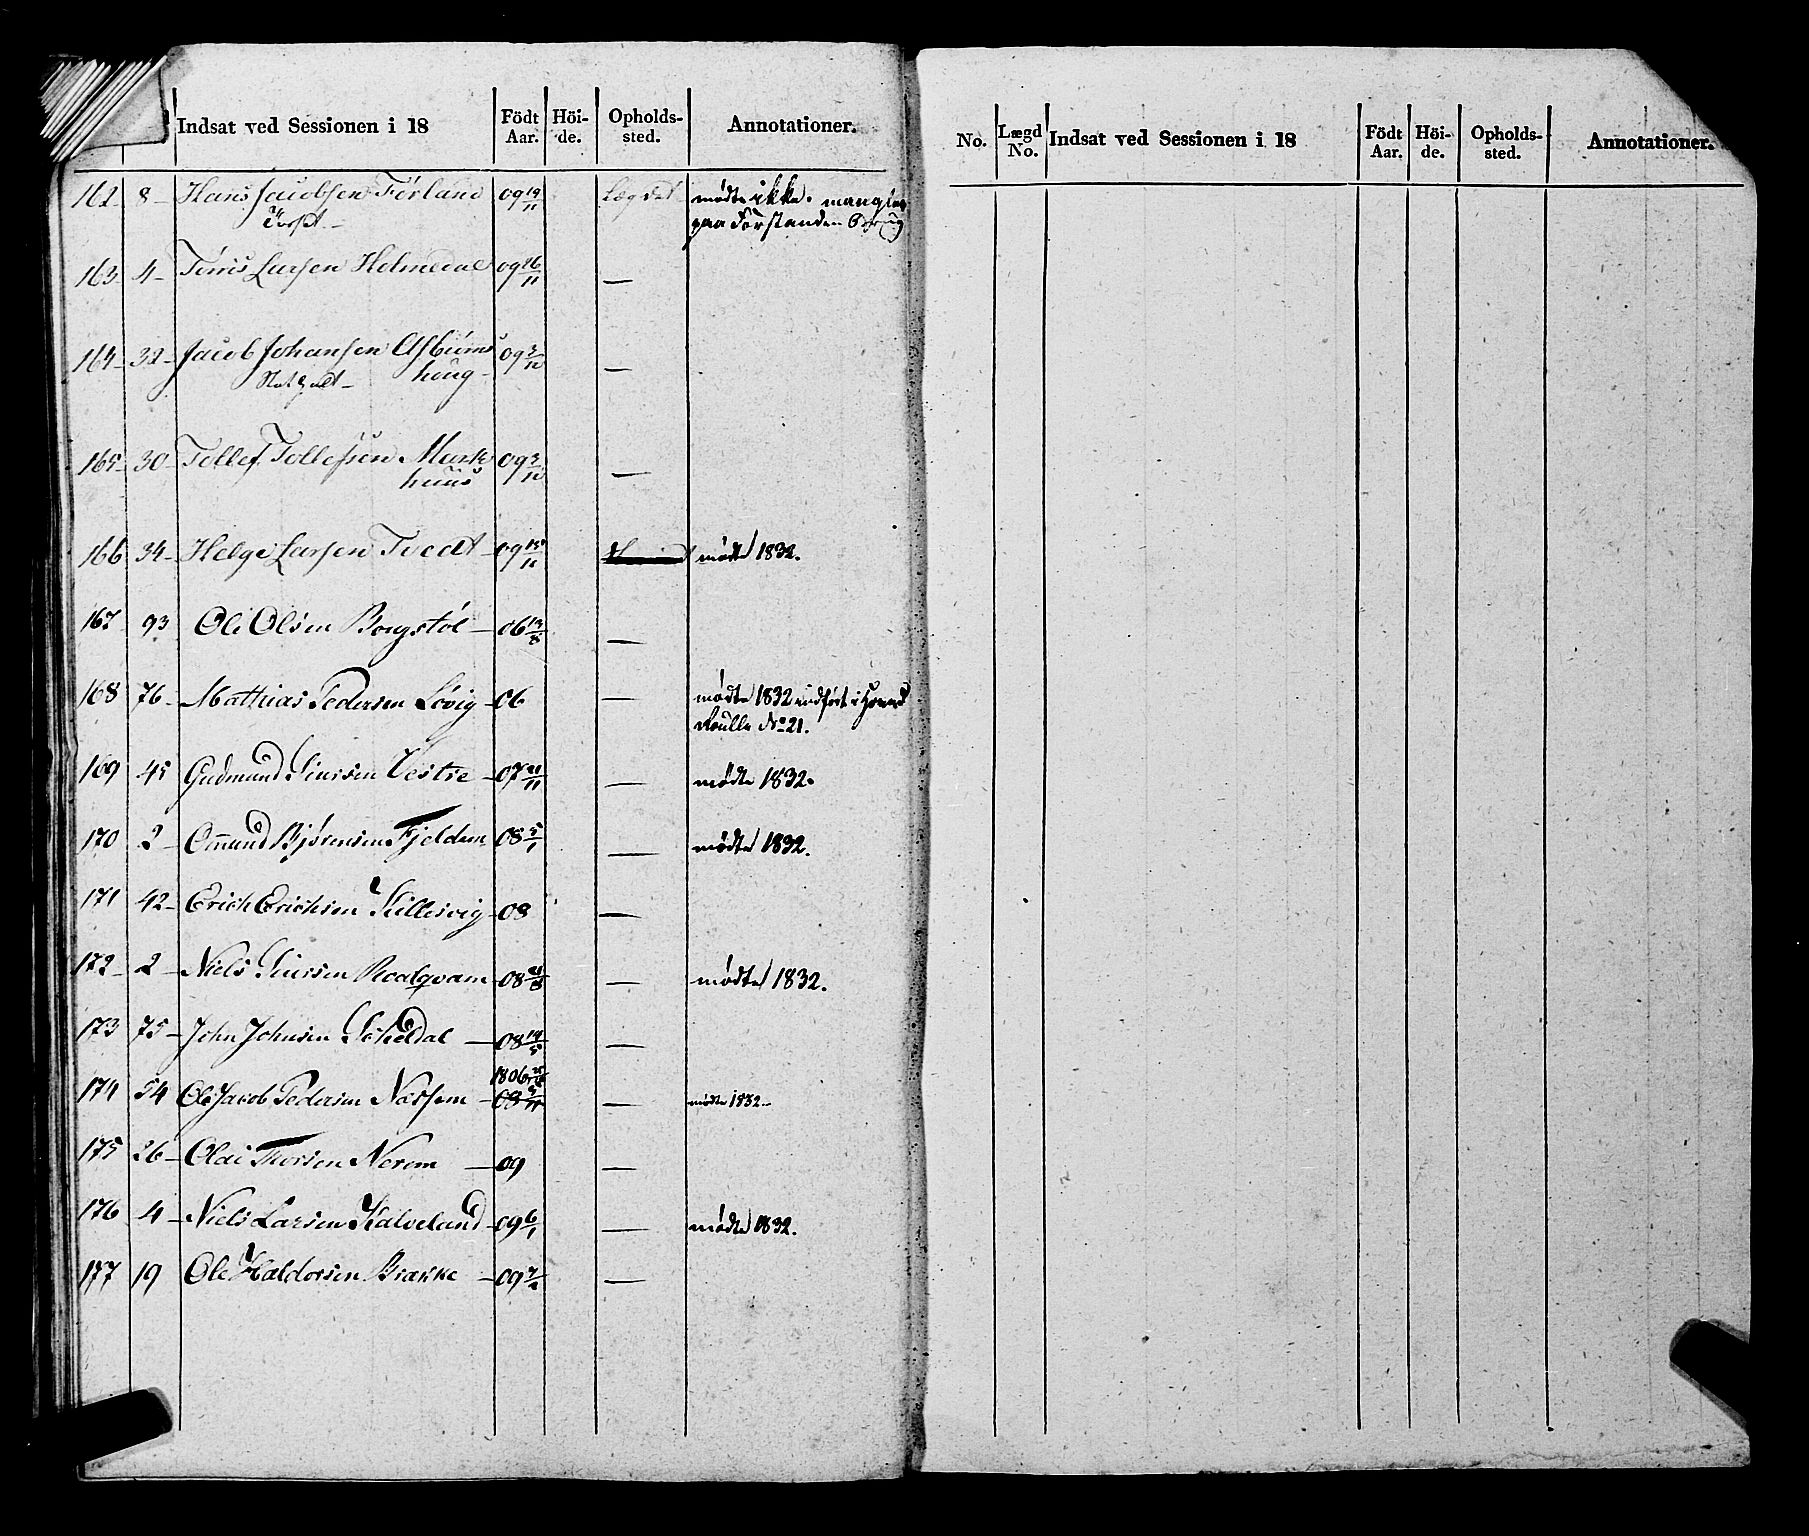 Indsat ved Sessionen i 18 Födt Aar. Höi-de. Opholds-sted. Annotationer.
162 8 - Hans Jacobsen Førland 09 19/11 Lægdet mødte ikke. mangler
paa Forstanden Brug
163 4 - Tønis Larsen Holmedal 09 26/11 —
164 32 - Jacob Johansen Asbiørns 09 3/10 —
houg -
165 30 - Tollef Tollefsen Mark 09 3/10 —
huus
166 34 - Helge Larsen Tvedt - 09 15/11 mødte 1832.
167 93 Ole Olsen Borgstøl — 06 13/8 —
168 76 - Mathias Pedersen Løvig - 06 — mødte 1832 indført i
Roulle No 21.
169 45 Gudmund Siursen Vestre - 07 21/11 — mødte 1832.
170 2 - Omund Bjørensen Fjeldem 08 5/1 — mødte 1832.
171 42 - Erich Erichsen Killesvig - 08 —
172 - 2 - Niels Siursen Roalqvam - 08 21/8 — mødte 1832.
173 75 - John Johnsen Sokedal — 08 14/5 —
1806
174 54 Ole Jacob Pedersen Næssem - 08 — mødte 1832 -
175 26 - Olai Thorsen Nerem — 09 —
176 4 - Niels Larsen Kalveland - 09 6/1 — mødte 1832.
177 19 Ole Haldorsen Brække - 09 —
No. Lægd No. Indsat ved Sessionen i 18 Födt Aar. Höi-de. Opholds-sted. Annotationer.